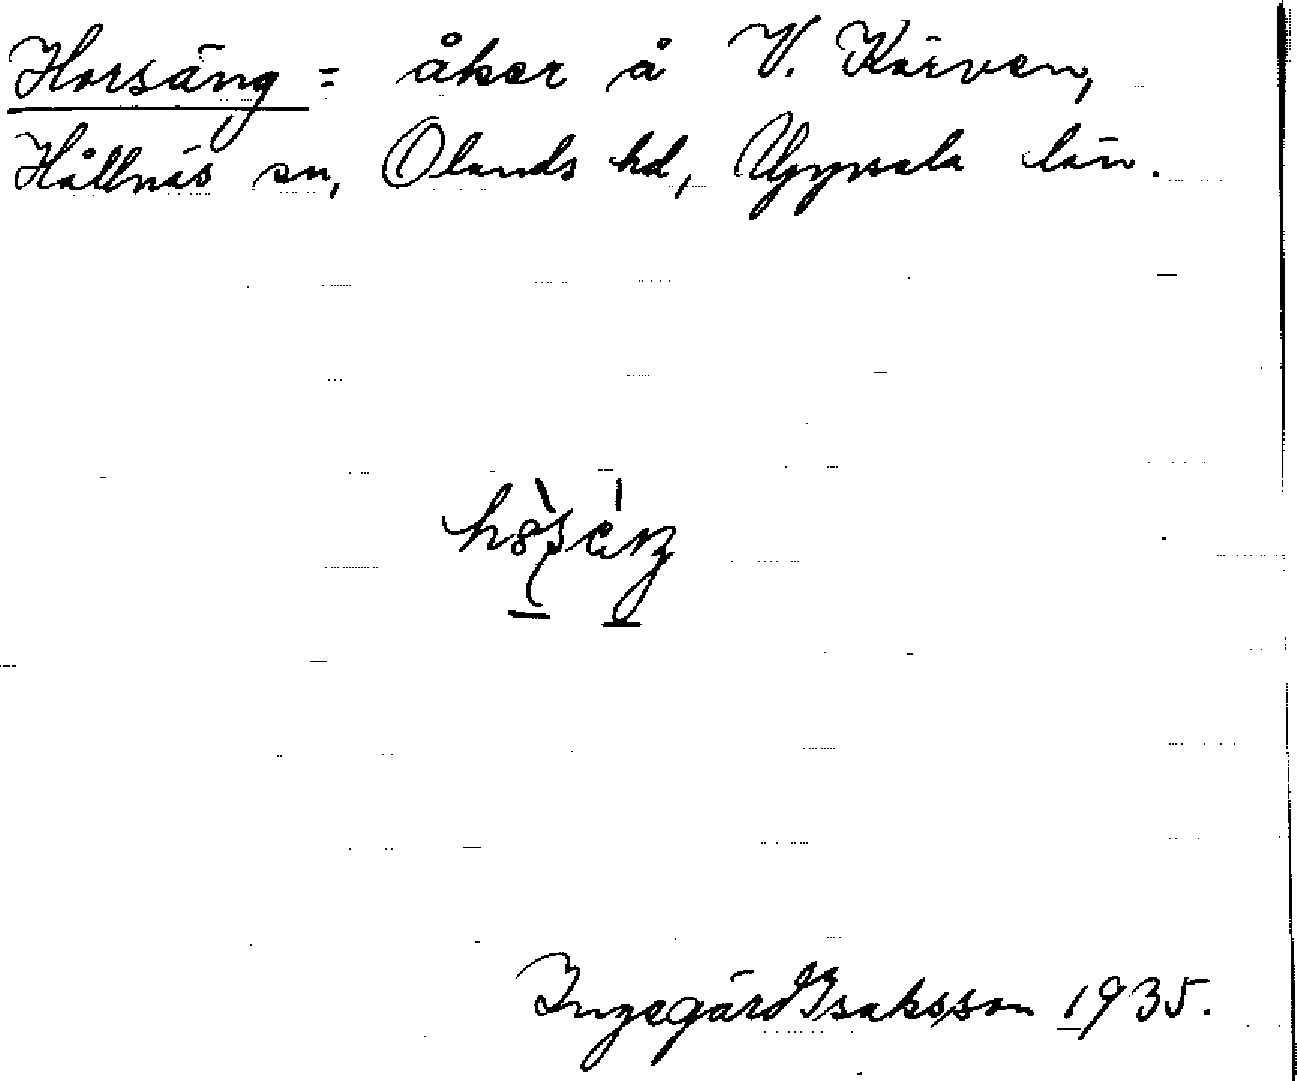 Horsäng = åker å V. Käiven,
Hållnäs sn, Olands hd, Uppsala län.
Ingegärd Isaksson 1935.